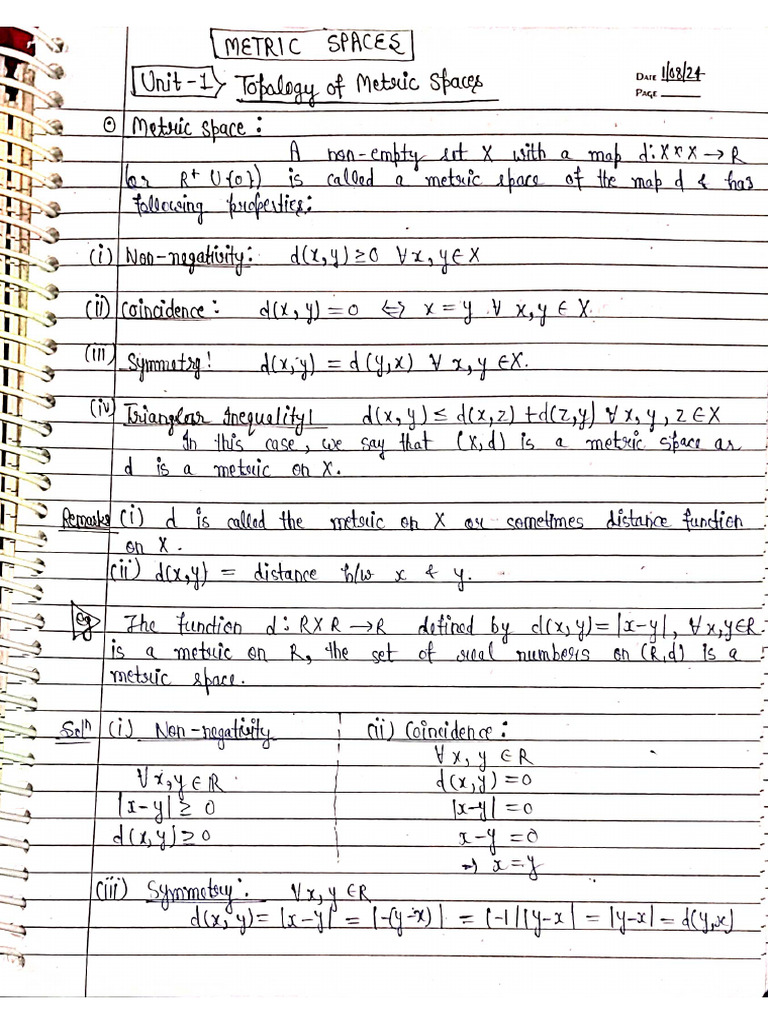 METRIC SPACES
Unit-1 Topology of Metric Spaces
DATE 1/08/24
PAGE
⊙ Metric space:
A non-empty set X with a map d: X×X → R
(or R⁺ ∪ {0}) is called a metric space of the map d & has
following properties:
(i) Non-negativity: d(x,y) ≥ 0 ∀ x, y ∈ X
(ii) Coincidence: d(x, y) = 0 ⇔ x = y ∀ x, y ∈ X.
(iii) Symmetry: d(x,y) = d(y,x) ∀ x, y ∈ X.
(iv) Triangular Inequality: d(x, y) ≤ d(x,z) + d(z,y) ∀ x, y, z ∈ X
In this case, we say that (X,d) is a metric space or
d is a metric on X.
Remarks (i) d is called the metric on X or sometimes distance function
on X.
(ii) d(x,y) = distance b/w x & y.
Eg The function d: R×R → R defined by d(x,y) = |x-y|, ∀ x,y ∈ R.
is a metric on R, the set of real numbers on (R,d) is a
metric space.
Solⁿ (i) Non-negativity
∀ x, y ∈ R
|x-y| ≥ 0
d(x,y) ≥ 0
(ii) Coincidence:
∀ x, y ∈ R
d(x,y) = 0
|x-y| = 0
x-y = 0
⇒ x = y
(iii) Symmetry: ∀ x, y ∈ R
d(x, y) = |x-y| = |-(y-x)| = |-1||y-x| = |y-x| = d(y,x)